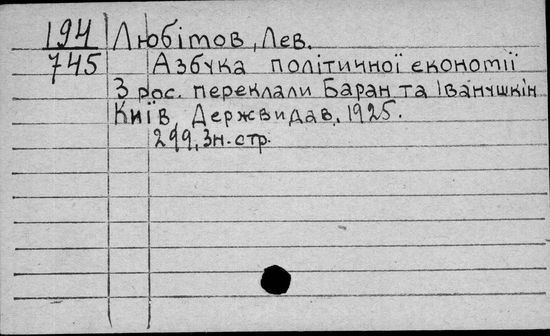 194 Любітов, Лев.
745 Азбука політичної економії
З рос. переклали Баран та Іванушкін
Київ, Держвидав, 1925.
299, 3н. стр.